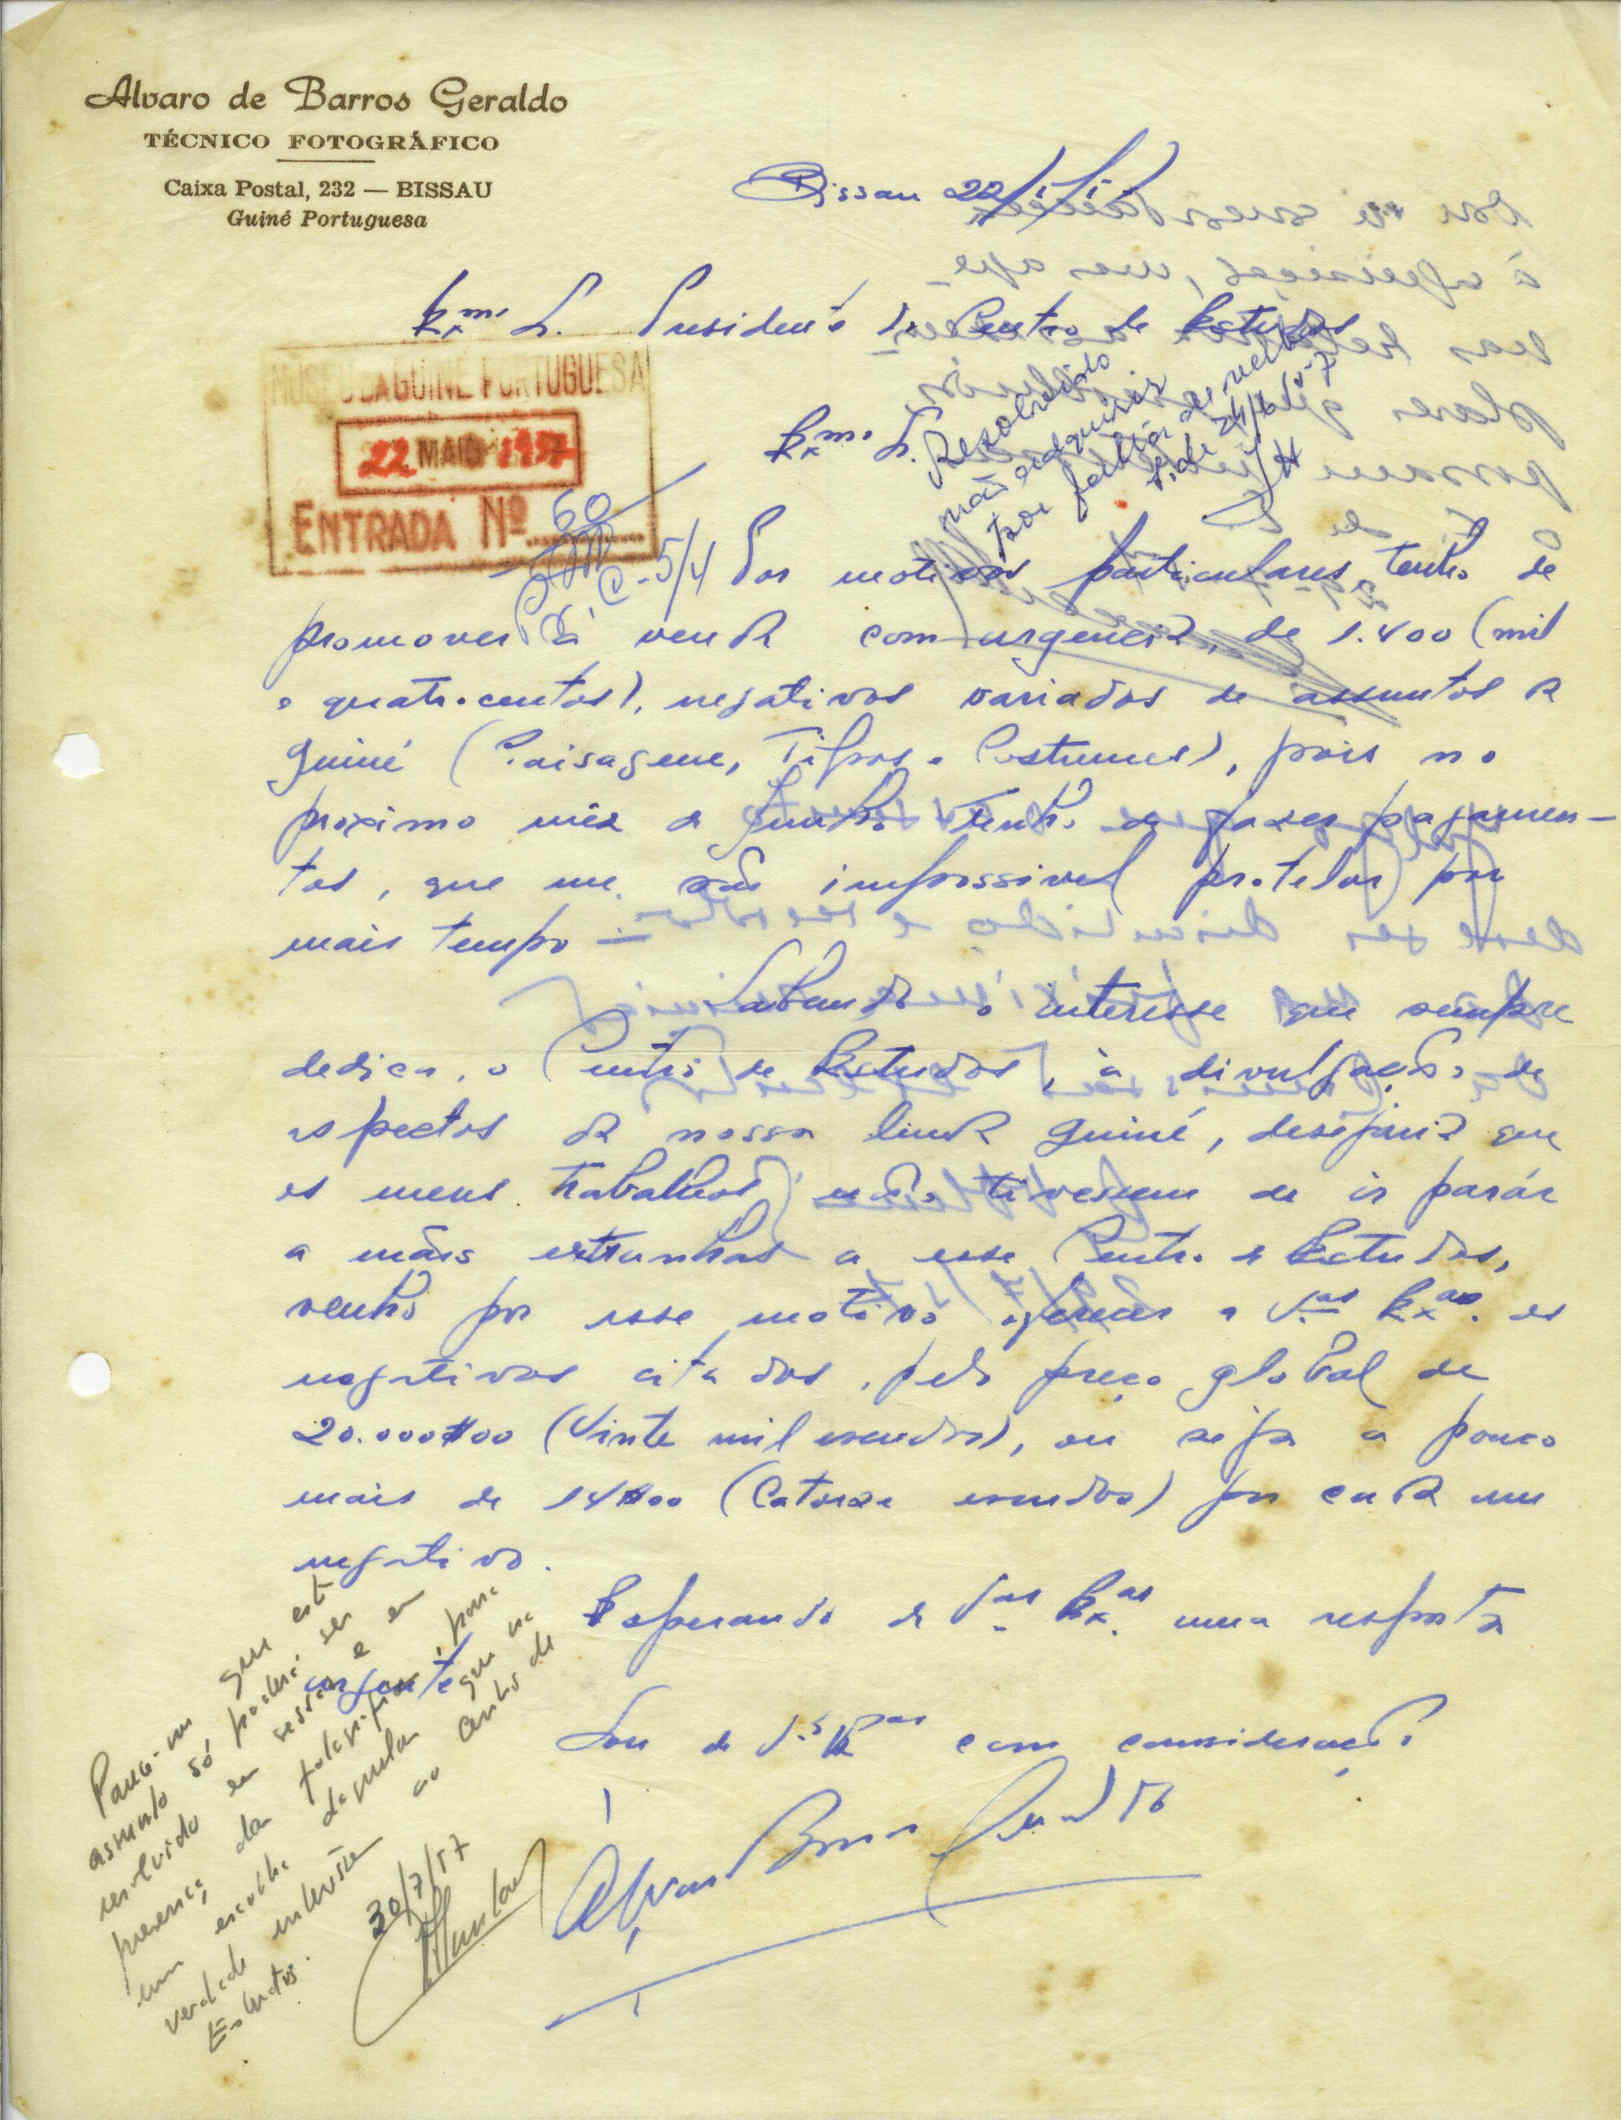 Alvaro de Barros Geraldo
TÉCNICO FOTOGRÁFICO
Caixa Postal, 232 — BISSAU
Guiné Portuguesa
Bissau 22/5/57
Exmo. Sr. Presidente do Centro de Estudos
MUSEU DA GUINÉ PORTUGUESA
22 MAIO 1957
ENTRADA Nº 60
C-5/4
Resolvido
não adquirir
por falta de verba
24/6/57
Exmo. Sr.
Por motivos particulares, tenho de
promover á venda com urgencia, de 1.400 (mil
e quatrocentos), negativos variados de assuntos da
Guiné (Paisagens, Tipos e Costumes), pois no
proximo mês de Junho tenho de fazer pagamen-
tos, que me são impossivel protelar por
mais tempo —
Sabendo o interesse que sempre
dedica, o Centro de Estudos, á divulgação de
aspectos da nossa linda Guiné, desejaria que
os meus trabalhos não tivessem de ir parár
a mãos estranhas a esse Centro de Estudos,
venho por esse motivo oferecer a V.as Ex.as os
negativos citados, pelo preço global de
20.000$00 (Vinte mil escudos), ou seja a pouco
mais de 14$00 (Catorze escudos) por cada um
negativo.
Esperando de V.as Ex.as uma resposta
urgente
Sou de V.as Ex.as com consideração
Alvaro Barros Geraldo
Parece-me que este
assunto só poderá ser
resolvido em sessão e em
presença das fotografias, para
uma escolha daquelas que na
verdade interessem ao Centro de
Estudos.
30/7/57